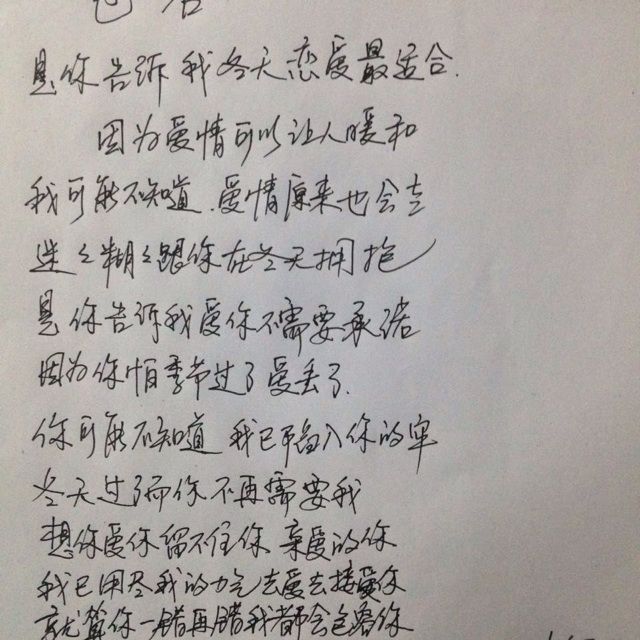 包容
是你告诉我冬天恋爱最适合.
因为爱情可以让人暖和
我可能不知道.爱情原来也会走
迷迷糊糊跟你在冬天拥抱
是你告诉我爱你不需要承诺
因为你怕季节过了爱丢了.
你可能不知道 我已陷入你的牢
冬天过了而你不再需要我
想你爱你留不住你 亲爱的你
我已用尽我的力气去爱去接受你
就算你一错再错我都会包容你